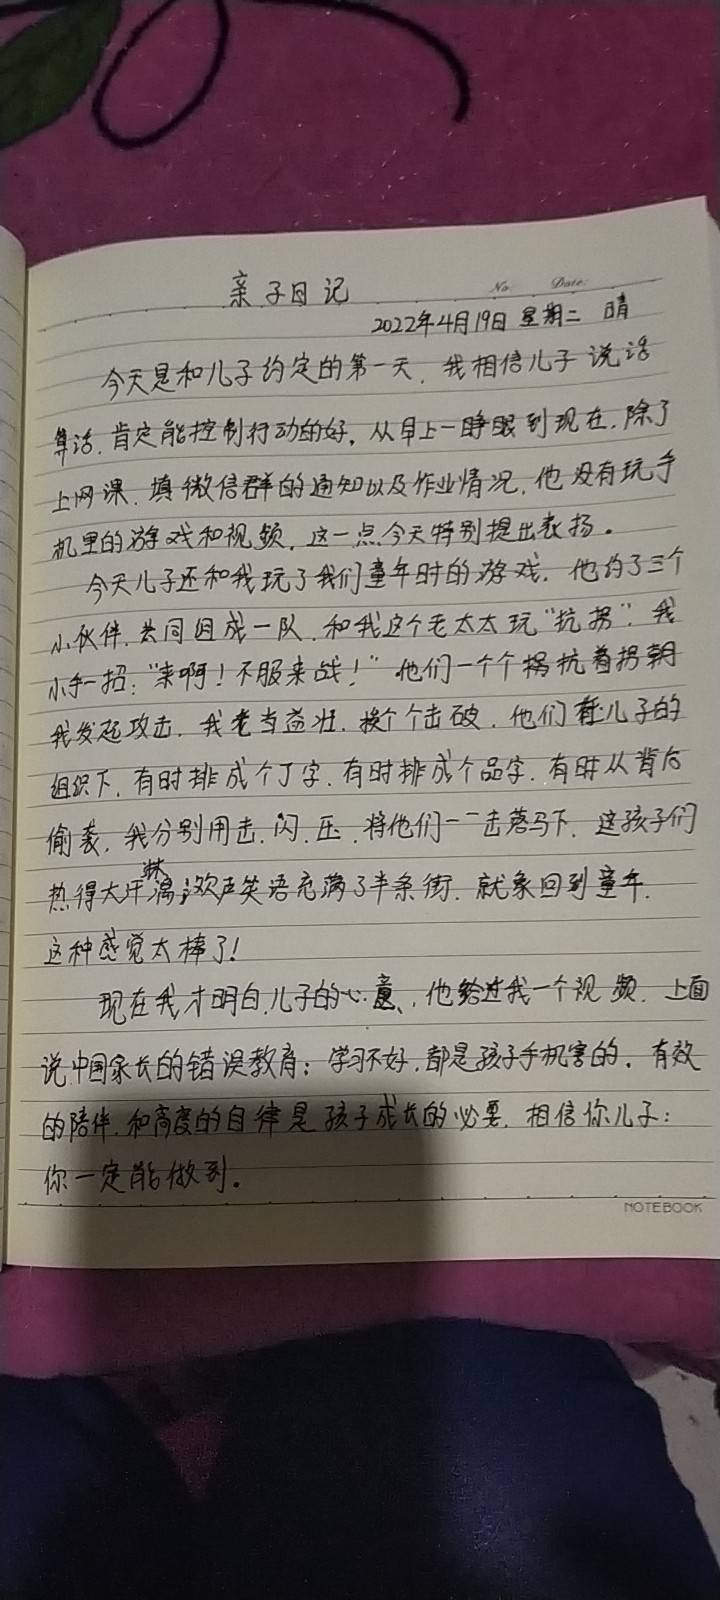 No: Date:
亲子日记
2022年4月19日 星期二 晴
今天是和儿子约定的第一天，我相信儿子说话
算话，肯定能控制行动的好。从早上一睁眼到现在，除了
上网课、填微信群的通知以及作业情况，他没有玩手
机里的游戏和视频，这一点今天特别提出表扬。
今天儿子还和我玩了我们童年时的游戏，他约了三个
小伙伴，共同组成一队，和我这个老太太玩“抗拐”，我
小手一招：“来啊！不服来战！”他们一个个抗着拐朝
我发起攻击，我老当益壮，挨个击破，他们在儿子的
组织下，有时排成个丁字，有时排成个品字，有时从背后
偷袭，我分别用击、闪、压，将他们一一击落马下，这孩子们
热得大汗淋漓，欢声笑语充满了半条街，就象回到童年，
这种感觉太棒了！
现在我才明白儿子的心意，他给过我一个视频，上面
说中国家长的错误教育：学习不好，都是孩子手机害的，有效
的陪伴，和高度的自律是孩子成长的必要，相信你儿子：
你一定能做到。
NOTEBOOK